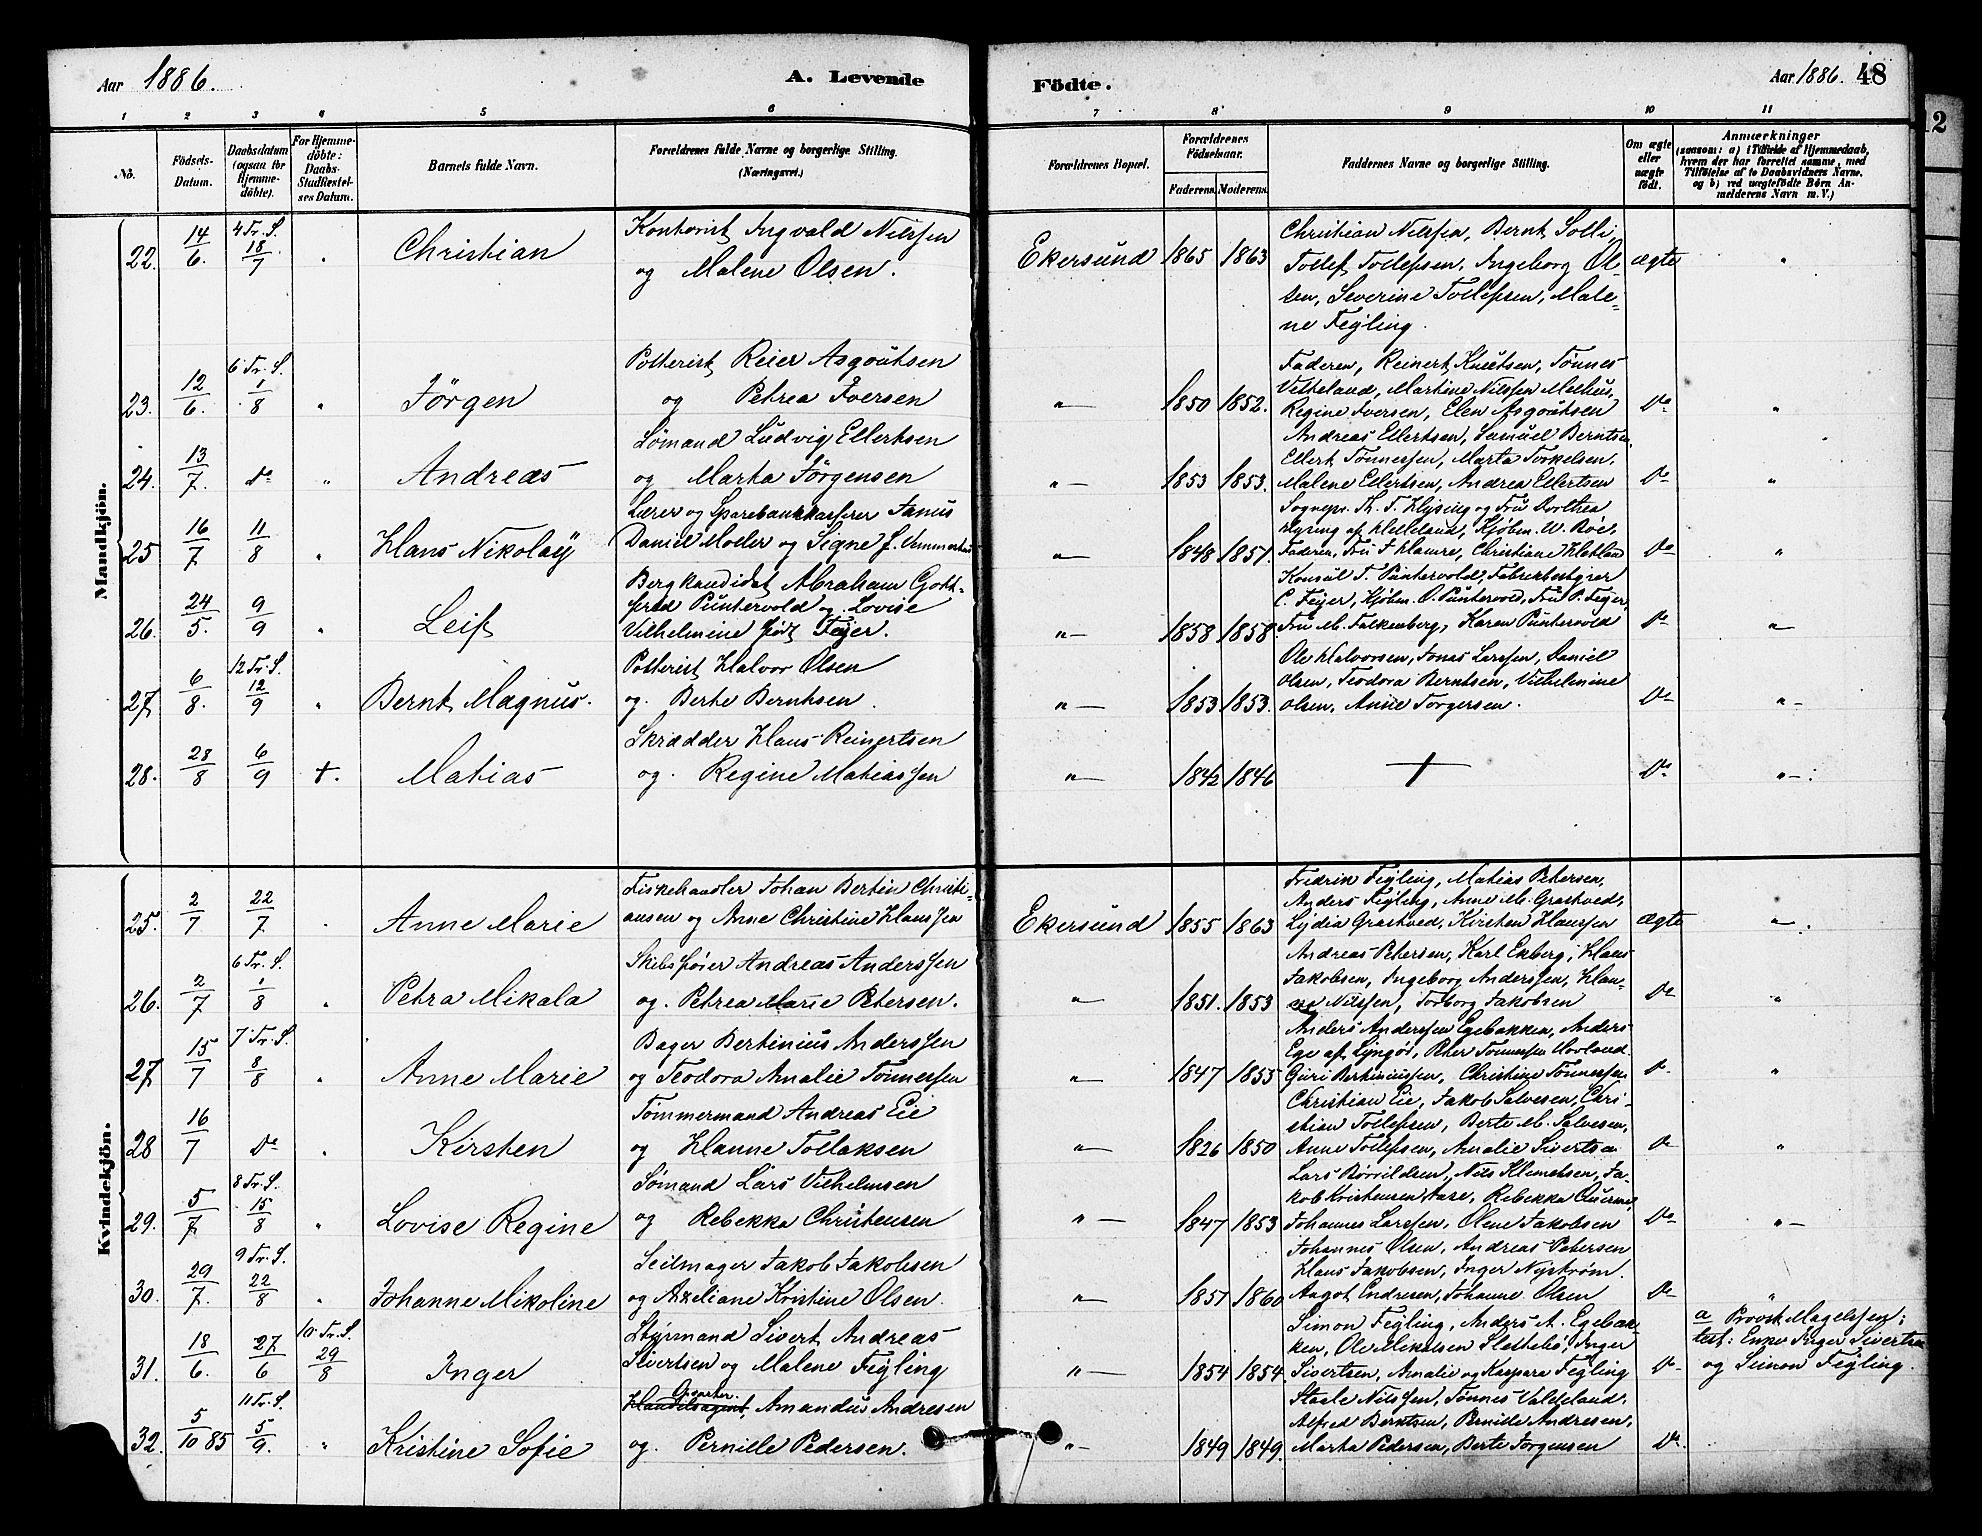 Aar 1886.
A. Levende
Födte.
Aar 1886. 48
12
1 2 3 4 5 6 7 8 9 10 11
No.
Födsels-Datum.
Daabsdatum (ogsaa for Hjemme-döbte).
For Hjemme-döbte: Daabs-Stadfæstel-ses Datum.
Barnets fulde Navn.
Forældrenes fulde Navne og borgerlige Stilling. (Næringsvei.)
Forældrenes Bopæl.
Forældrenes Födselsaar.
Faderens. Moderens.
Faddernes Navne og borgerlige Stilling.
Om ægte eller uægte födt.
Anmærkninger
(saasom: a) i Tilfælde af Hjemmedaab, hvem der har forrettet samme, med Tilföielse af to Daabsvidners Navne. og b) ved uægtefödte Börn An-melderens Navn m. V.)
Mandkjön.
22. 14/6. 4 Tr. S. 18/7 " Christian
Kontorist Ingvald Nilssen
og Malene Olsen.
Ekersund 1865 1863
Christian Nilssen, Bernt Solli,
Tollef Tollefsen, Ingeborg Ol-
sen, Severine Tollefsen, Male-
ne Feyling.
ægte "
23. 12/6. 6 Tr. S. 1/8 " Jörgen
Potterist Reier Asgoutsen
og Petrea Iversen
"— 1850 1852.
Faderen, Reinert Knutsen, Tønnes
Martine Nilssen
Regine Iversen, Elen Asgoutsen
Do "
24. 13/7. do " Andreas
Sømand Ludvig Ellertsen
og Marta Jörgensen
"— 1853 1853.
Andreas Ellertsen, Samuel Berntsen,
Ellert Tønnessen, Marta Torkelsen,
Malene Ellertsen, Andrea Ellertsen
Do "
25 16/7 11/8 " Hans Nikolay
Lærer og Sparebankkasserer Janus
Daniel Moder og Signe J.
"— 1848 1857.
Sognepr. Th. F. Klysing og Fru Dorthea
Klysing af Helleland, Kjøbm. W. Bøe,
Faderen, Fru F Hamre, Christiane
Do "
26. 24/5. 9/9 " Leif
Bergkandidat Abraham Gott-
fred Puntervold og Lovise
Vilhelmine født Feyer.
"— 1858 1858.
Konsul T. Puntervold, Fabrikbestyrer
C. Feyer, Kjøbm. O. Puntervold, Fru P. Feyer,
Fru M. Falkenberg, Karen Puntervold
Do "—
27 6/8. 12 Tr. S. 12/9 " Bernt Magnus.
Potterist Halvor Olsen
og. Berte Berntsen.
"— 1853. 1853.
Ole Halvorsen, Jonas Larssen, Daniel
Olsen, Teodora Berntsen, Vilhelmine
Olsen, Anne Torgersen.
Do "—
28. 28/8 6/9 +. Matias
Skrædder Hans Reinertsen
og. Regine Matiassen
"— 1842 1846
+
Do "—:
Kvindekjön.
25. 2/7 22/7 " Anne Marie
Fiskehandler Johan Bertin Christi-
ansen og Anne Christine Hanssen
Ekersund 1855 1863
Fredrik Feyling, Matias Petersen,
Anders Feyling, Anne M. Grastved,
Lydia Grastved, Kirsten Hanssen
ægte "—.
26. 2/7 6 Tr. S. 1/8 " Petra Mikala
Skibsfører Andreas Anderssen
og. Petrea Marie Petersen.
"— 1851. 1853
Andreas Petersen, Karl Ekberg, Hans
Jakobsen, Ingeborg Anderssen, Han-
ne Nilssen, Torborg Jakobsen
Do "
27 15/7 7 Tr. S. 8/8 " Anne Marie
Bager Bertinius Anderssen
og Teodora Amalie Tønnessen
"— 1847 1855
Anders Anderssen Egebakken, Anders
Ege af Lyngör, Peter Tønnessen Hovland.
Guri Bertiniussen, Christine Tønnessen
Do "
28 16/7 Do " Kirsten
Tømmermand Andreas Eie
og Hanne Tollaksen
"— 1826 1850
Christian Eie, Jakob Salvesen, Chri-
stian Tollefsen, Berte M. Salvesen,
Anne Tollefsen, Amalie Sivertsen
Do "
29. 5/7 8 Tr. S. 15/8 " Lovise Regine
Sømand Lars Vilhelmsen
og Rebekka Christensen
"— 1847 1853
Lars Nils Klemetsen, Ja-
kob Kristensen Aase, Rebekka
Johannes Larssen, Olene Jakobsen
Do "—
30. 29/7. 9 Tr. S. 22/8 " Johanne Mikoline
Seilmager Jakob Jakobsen
og Axeliane Kristine Olsen.
"— 1857 1860
Johannes Olsen, Andreas Petersen
Hans Jakobsen, Inger Nystrøm.
Aagot Endresen, Johanne Olsen
Do "
31. 18/6. 27/6 10. Tr. S. 29/8 Inger
Styrmand Sivert Andreas
Sivertsen og Malene Feyling
"— 1854 1854
Simon Feyling, Anders A. Egebak-
ken, Ole Mikalsen Slettebö, Inger
Sivertsen, Amalie og Kaspara Feyling
Do
a Provst Magelssen;
test: Enke Inger Sivertsen
og Simon Feyling.
32. 5/10 85 11 Tr. S. 5/9. " Kristine Sofie
Opvarter.
Handelsagent, Amandus Andresen
og. Pernille Pedersen.
"— 1849 1849.
Staale Nilssen, Tønnes Valdeland,
Alfred Berntsen, Pernille Andresen,
Marta Pedersen, Berte Jorgensen
Do.